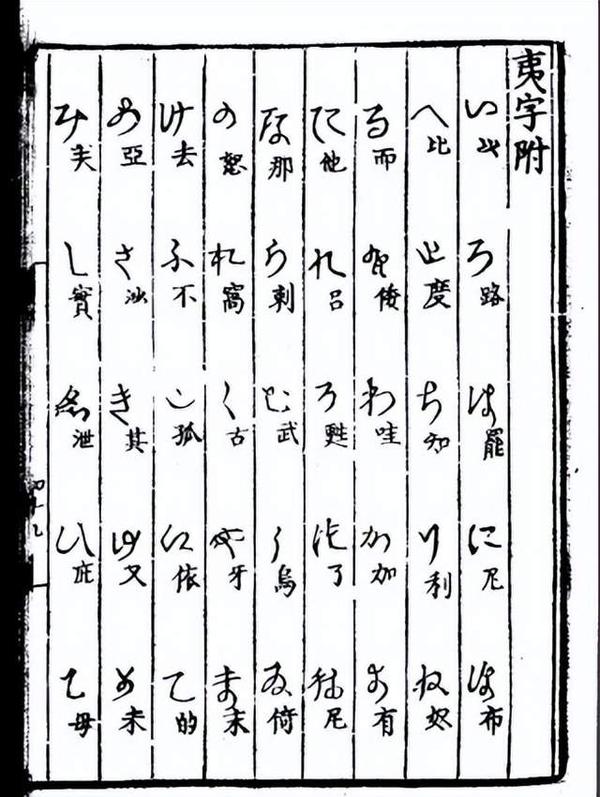 夷字附
い ろ路 は罷 に尼 ほ布
へ比 と度 ち知 り利 ぬ奴
る而 を倭 わ哇 か加 よ有
た他 れ呂 そ甦 つ了 ね尼
な那 ら剌 む武 う烏 ゐ倚
の怒 お窩 く古 や牙 ま末
け去 ふ不 こ孤 え依 て的
あ亞 さ沙 き其 ゆ又 め未
み し實 ゑ泄 ひ庇 も母